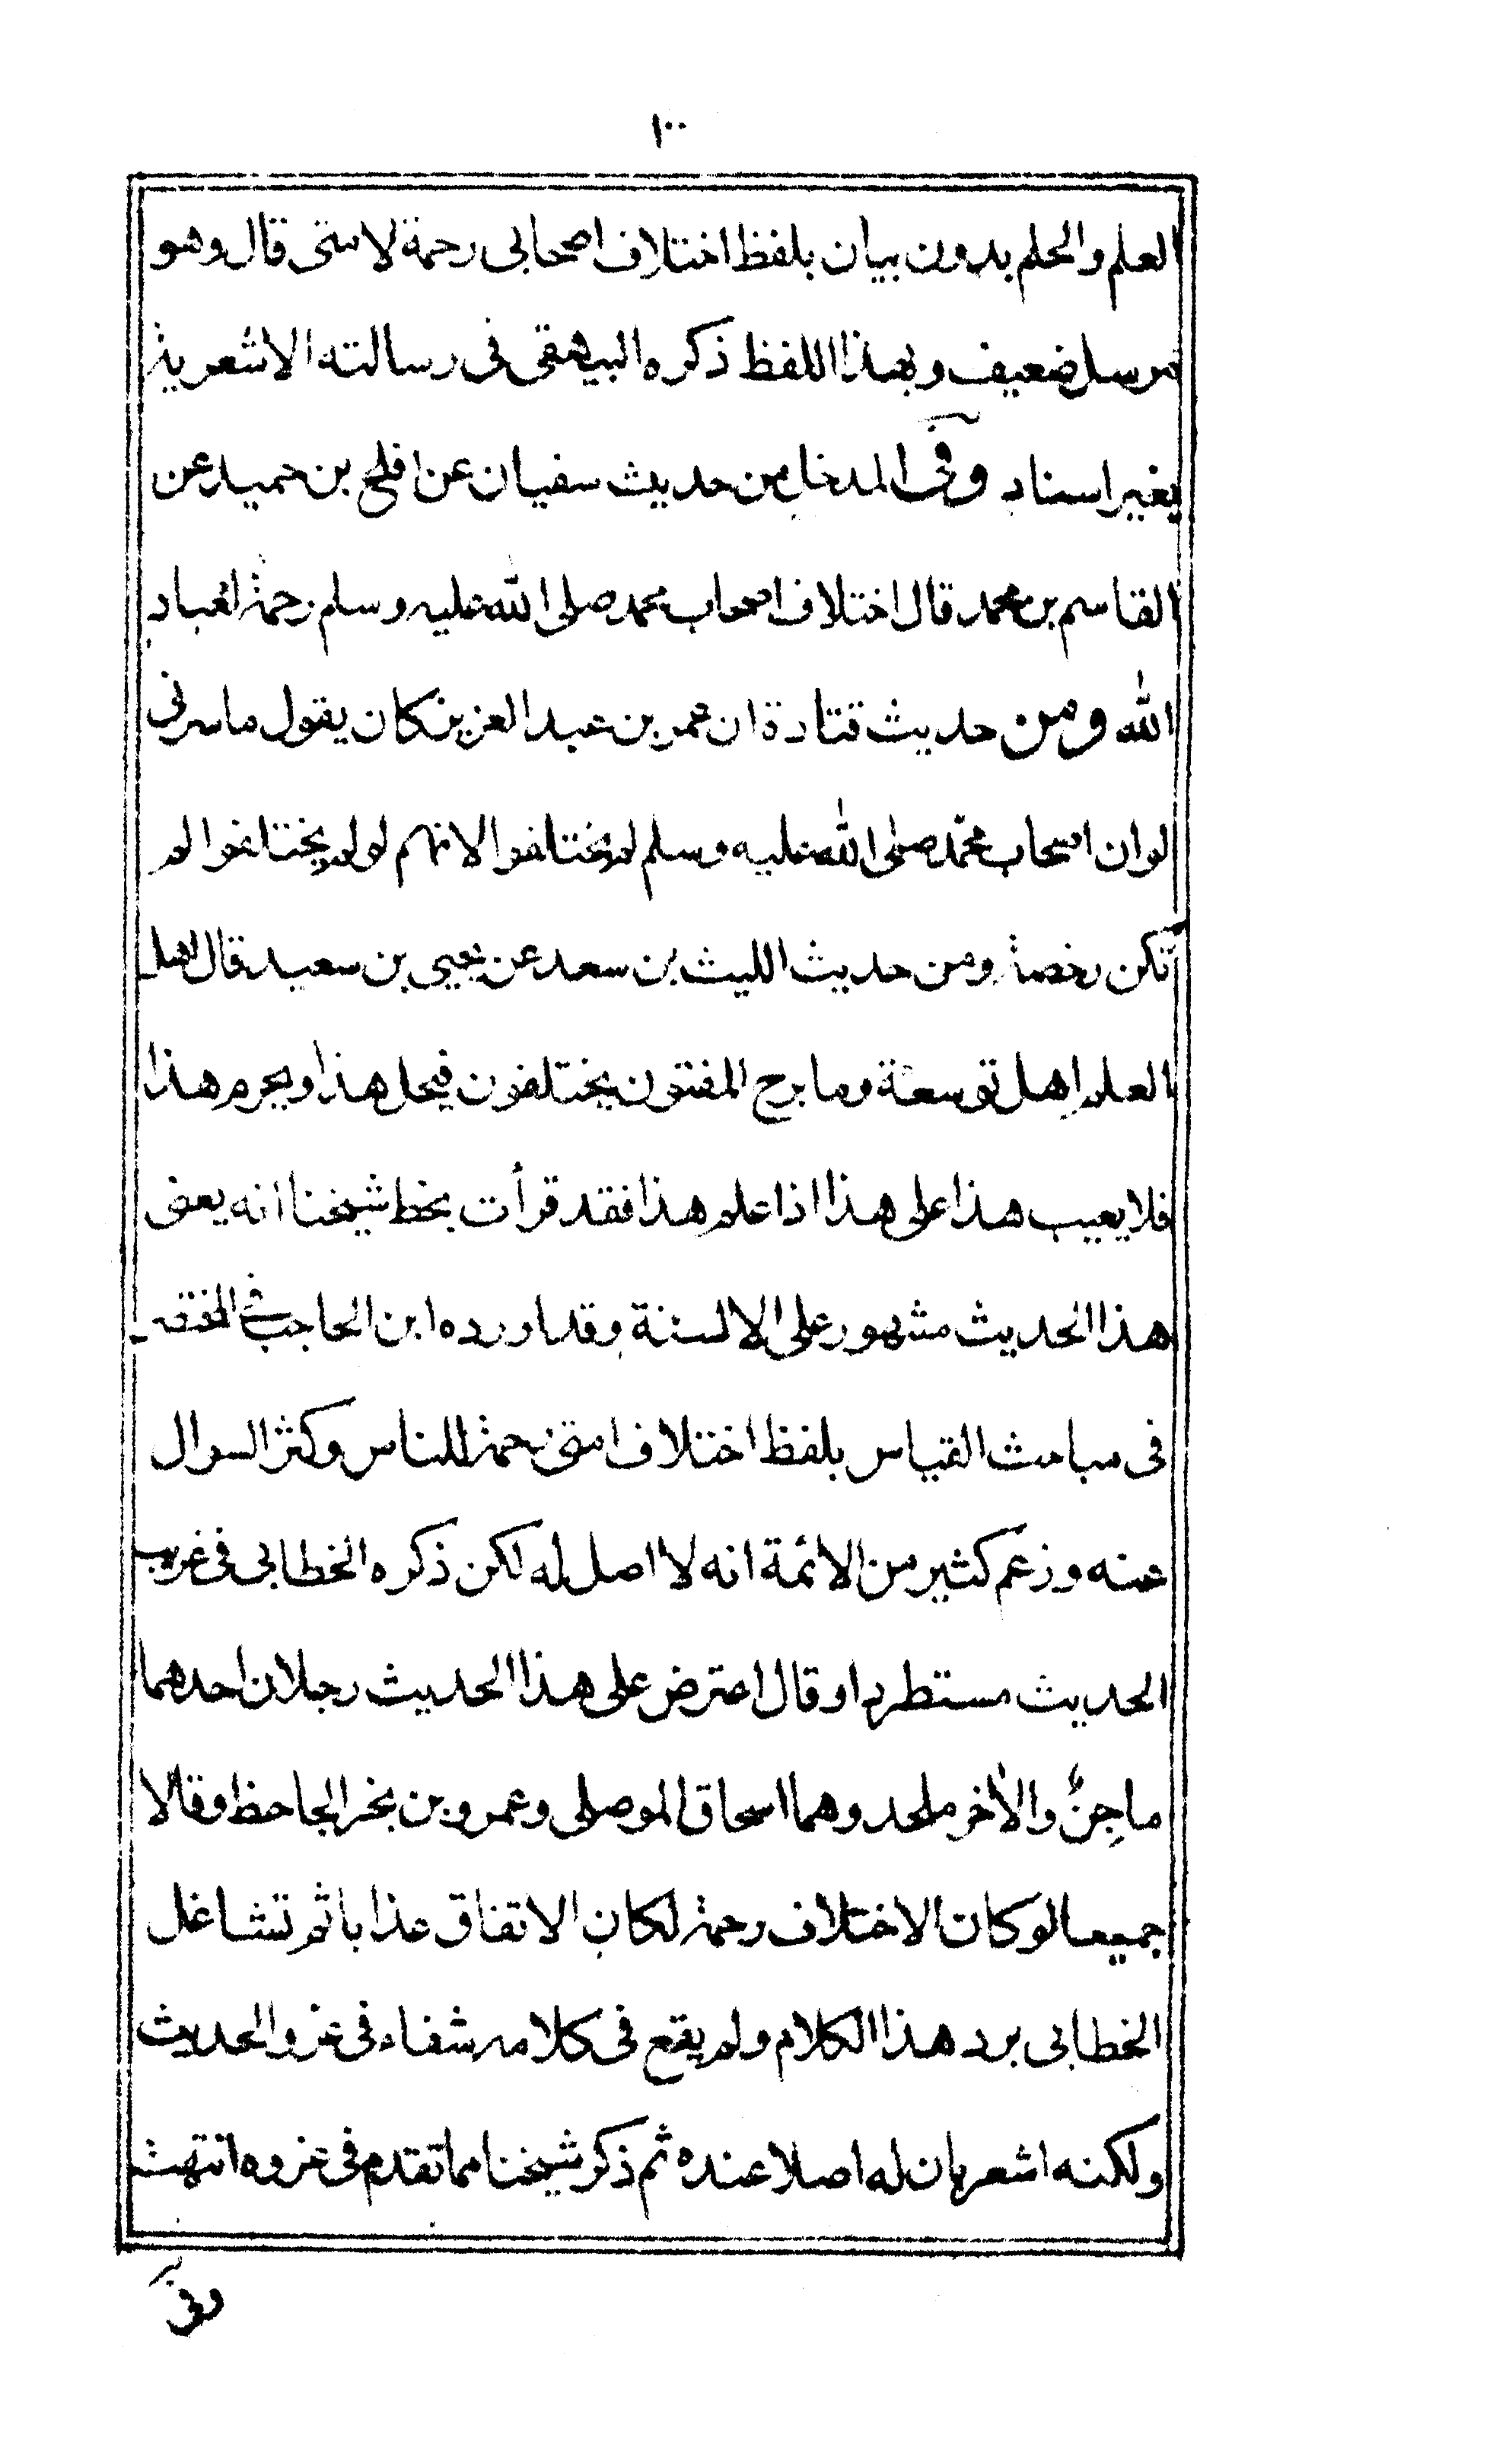 ١٠٠
العلم والحلم بدون بيان بلفظ اختلاف اصحابى رحمة لامتى قال وهو
مرسل ضعيف وبهذا اللفظ ذكره البيهقى فى رسالته الاشعرية
بغير اسناد وفى المدخل من حديث سفيان عن افلح بن حميد عن
القاسم بن محمد قال اختلاف اصحاب محمد صلى الله عليه وسلم رحمة لعباد
الله ومن حديث قتادة ان عمر بن عبد العزيز كان يقول ما سرنى
لو ان اصحاب محمد صلى الله عليه وسلم لم يختلفوا لانهم لو لم يختلفوا لم
تكن رخصة ومن حديث الليث بن سعد عن يحيى بن سعيد قال اهل
العلم اهل توسعة وما برح المفتون يختلفون فيحل هذا ويحرم هذا
فلا يعيب هذا على هذا اذا علم هذا فقد قرأت بخط شيخنا انه يعنى
هذا الحديث مشهور على الالسنة وقد اورده ابن الحاجب فى المختصر
فى مباحث القياس بلفظ اختلاف امتى رحمة للناس وكثر السوال
عنه وزعم كثير من الائمة انه لا اصل له لكن ذكره الخطابى فى غريب
الحديث مستطردا وقال اعترض على هذا الحديث رجلان احدهما
ماجِنٌ والاٰخر ملحد وهما اسحاق الموصلى وعمرو بن بحر الجاحظ وقالا
جميعا لو كان الاختلاف رحمة لكان الاتفاق عذابا ثم تشاغل
الخطابى برد هذا الكلام ولم يقع فى كلامه شفاء فى عزو الحديث
ولكنه اشعر بان له اصلا عنده ثم ذكر شيخنا مما تقدم فى عزوه انتهت
وفى